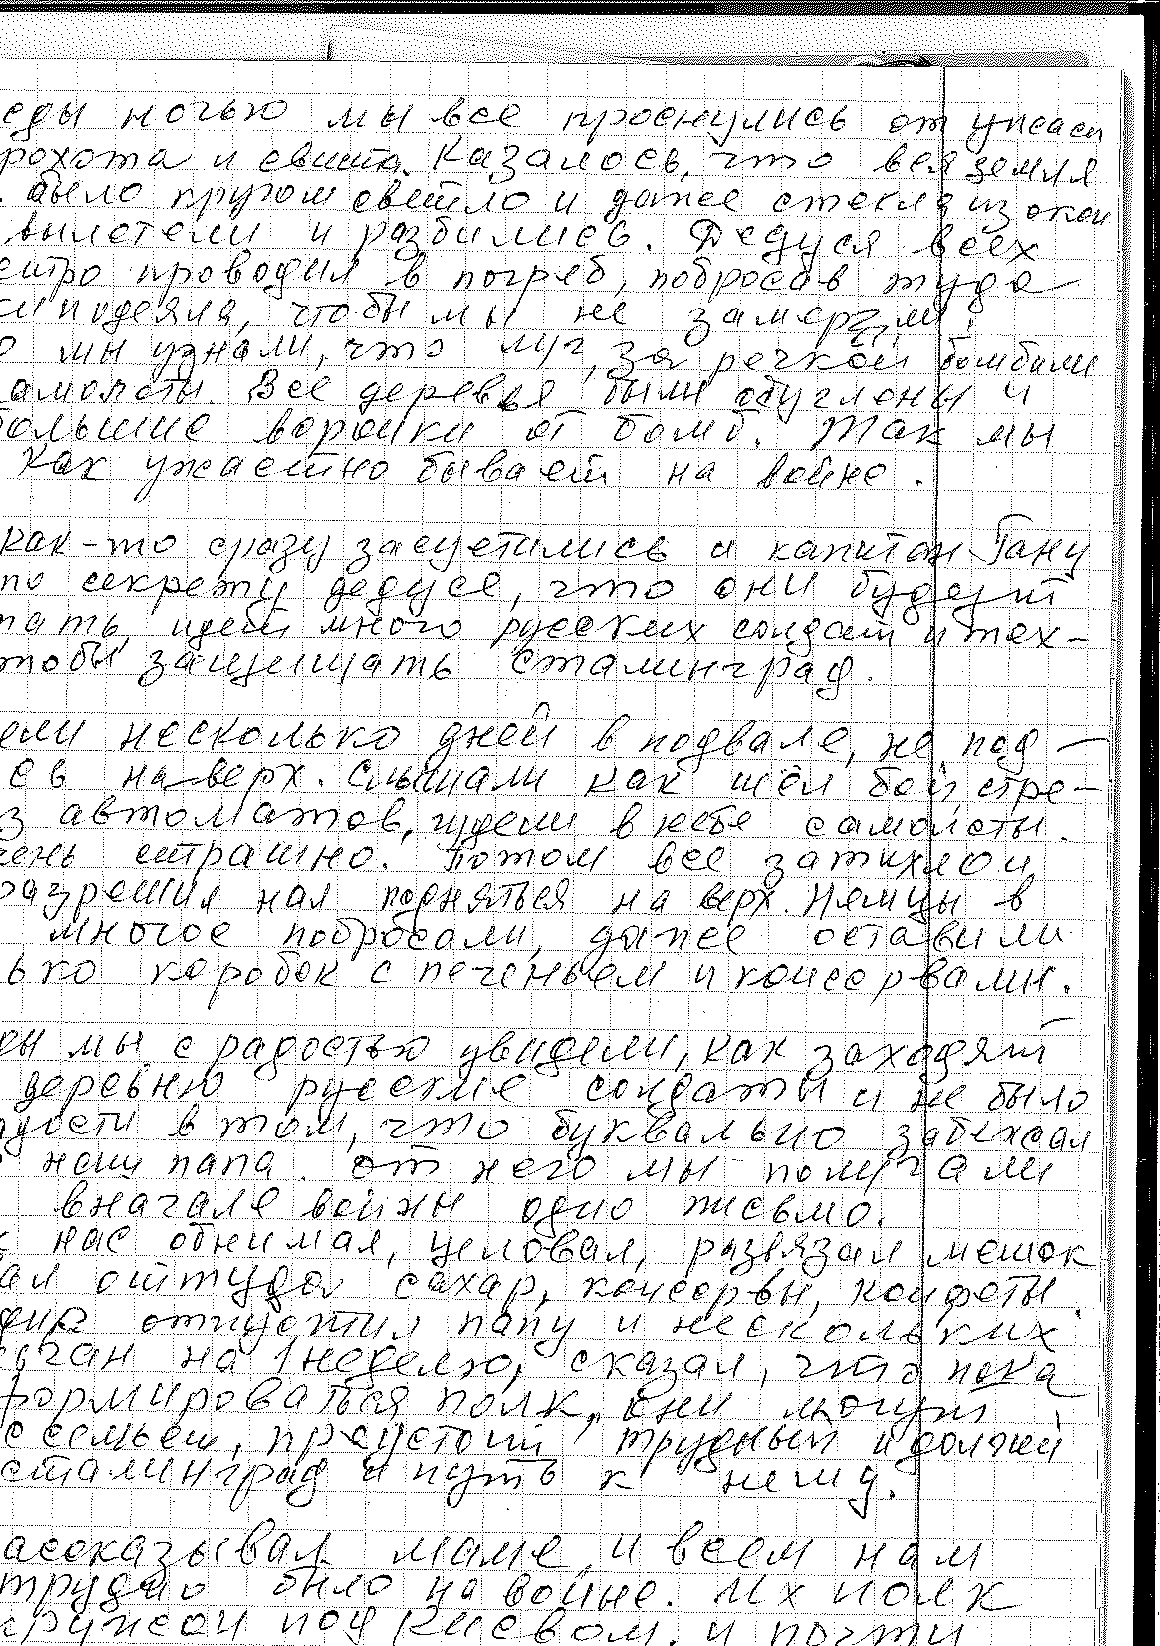 еды ночью мы все проснулись от ужасн
рохота и свиста. Казалось, что вся земля
. было кругом светло и даже стекла из окон
вылетели и разбились. Дедуся всех
проводил в погреб, побросав туда
и подеяла, чтобы мы не замерзли.
о мы узнали, что луг, за речкой бомбили
амолеты. Все деревья были обуглены и
большие воронки от бомб. Так мы
как ужастно бывает на войне.
как-то сразу засуетились и капитан Гану
по секрету дедусе, что они будут
пать, идет много русских солдат и тех-
тобы защищать Сталинград.
ели несколько дней в подвале, не под-
сь на-верх. Слышали как шёл бой, стре-
з автоматов, гудели в небе самолеты.
чень страшно. Потом все затихло и
разрешил нам подняться на верх. Немцы в
многое побросали, даже оставили
ько коробок с печеньем и консервами.
мы с радостью увидели, как заходят
деревню русские солдаты и не было
адости в том, что буквально забежал
наш папа. От него мы получали
вначале войны одно письмо.
нас обнимал, целовал, развязал мешок
ал оттуда сахар, консервы, конфеты.
отпустил папу и нескольких
на 1 неделю, сказал, что пока
формироваться полк, они могут
с семьей, предстоит трудный и долгий
Сталинград и путь к нему.
ассказывал маме и всем нам
трудно было на войне. Их полк
под Киевом, и почти